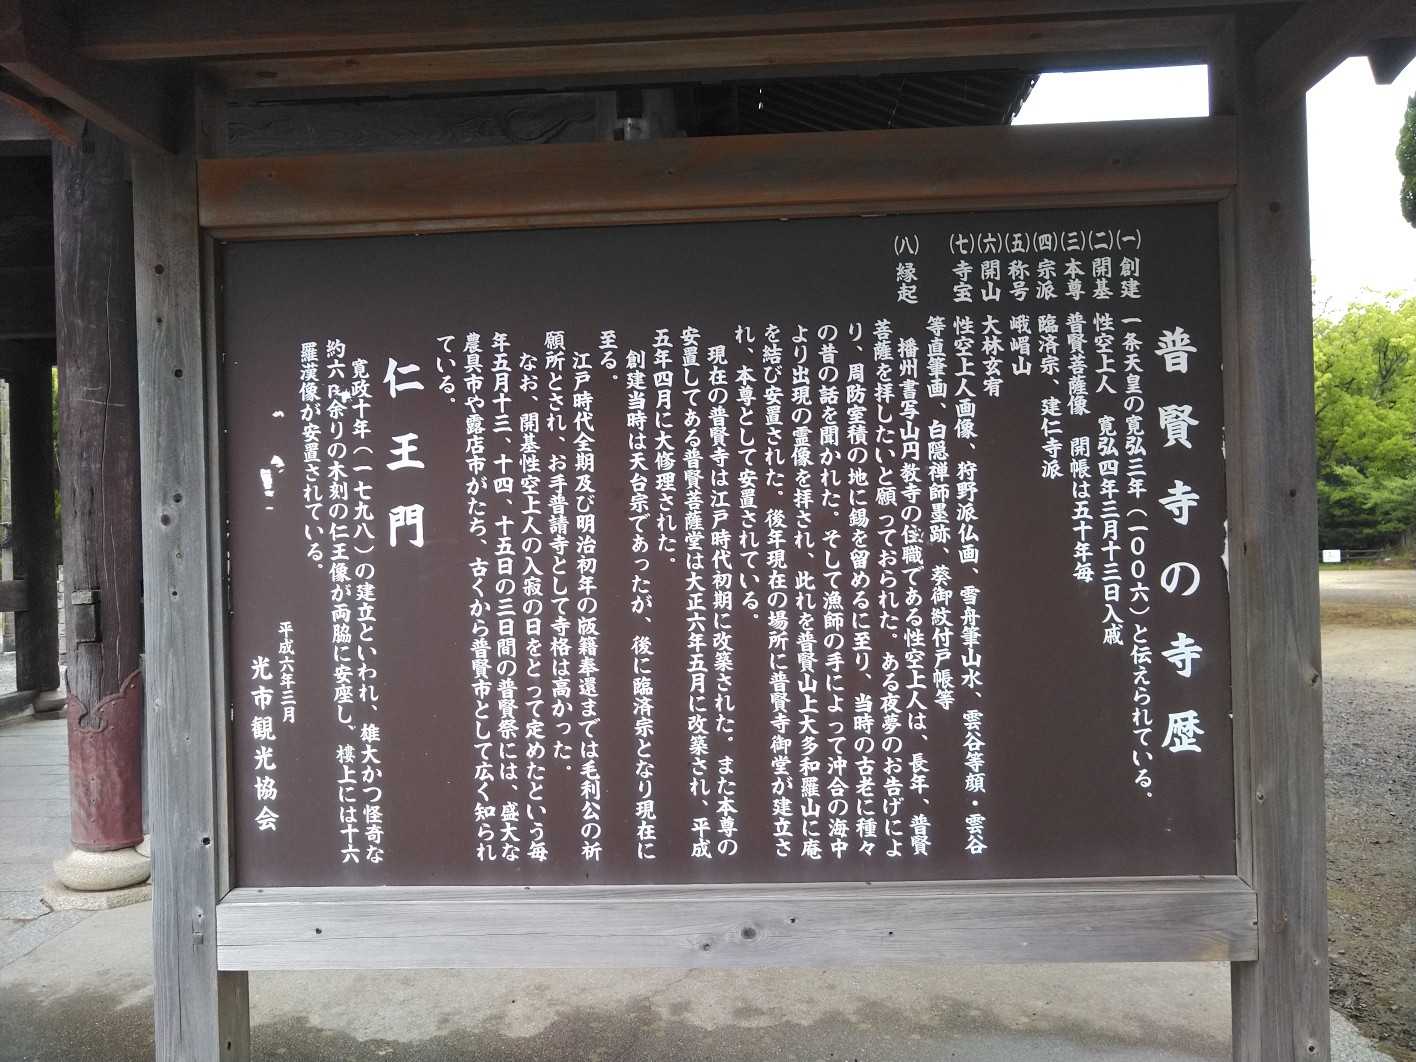 普賢寺の寺歴
(一)創建 一条天皇の寛弘三年(一〇〇六)と伝えられている。
(二)開基 性空上人 寛弘四年三月十三日入寂
(三)本尊 普賢菩薩像 開帳は五十年毎
(四)宗派 臨済宗、建仁寺派
(五)称号 峨嵋山
(六)開山 大林玄宥
(七)寺宝 性空上人画像、狩野派仏画、雪舟筆山水、雲谷等顔・雲谷
等直筆画、白隠禅師墨跡、葵御紋付戸帳等
(八)縁起
播州書写山円教寺の住職である性空上人は、長年、普賢
菩薩を拝したいと願っておられた。ある夜夢のお告げによ
り、周防室積の地に錫を留めるに至り、当時の古老に種々
の昔の話を聞かれた。そして漁師の手によって沖合の海中
より出現の霊像を拝され、此れを普賢山上大多和羅山に庵
を結び安置された。後年現在の場所に普賢寺御堂が建立さ
れ、本尊として安置されている。
現在の普賢寺は江戸時代初期に改築された。また本尊の
安置してある普賢菩薩堂は大正六年五月に改築され、平成
五年四月に大修理された。
創建当時は天台宗であったが、後に臨済宗となり現在に
至る。
江戸時代全期及び明治初年の版籍奉還までは毛利公の祈
願所とされ、お手普請寺として寺格は高かった。
なお、開基性空上人の入寂の日をとって定めたという毎
年五月十三、十四、十五日の三日間の普賢祭には、盛大な
農具市や露店市がたち、古くから普賢市として広く知られ
ている。
仁王門
寛政十年(一七九八)の建立といわれ、雄大かつ怪奇な
約六 余りの木刻の仁王像が両脇に安座し、楼上には十六
羅漢像が安置されている。
平成六年三月
光市観光協会